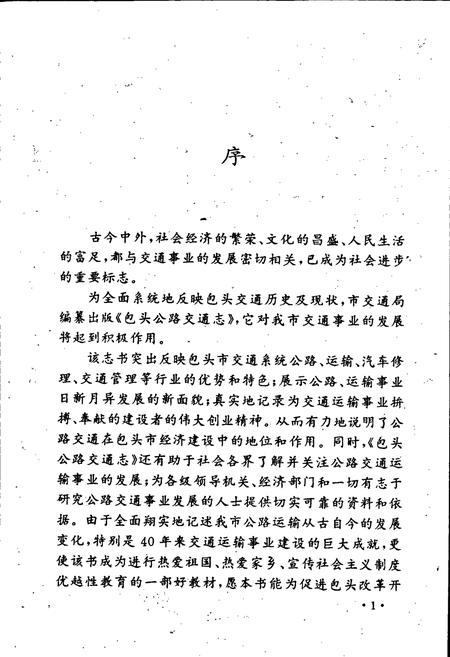 序
古今中外，社会经济的繁荣、文化的昌盛、人民生活
的富足，都与交通事业的发展密切相关，已成为社会进步
的重要标志。
为全面系统地反映包头交通历史及现状，市交通局
编纂出版《包头公路交通志》，它对我市交通事业的发展
将起到积极作用。
该志书突出反映包头市交通系统公路、运输、汽车修
理、交通管理等行业的优势和特色；展示公路、运输事业
日新月异发展的新面貌；真实地记录为交通运输事业拚
搏、奉献的建设者的伟大创业精神。从而有力地说明了公
路交通在包头市经济建设中的地位和作用。同时，《包头
公路交通志》还有助于社会各界了解并关注公路交通运
输事业的发展；为各级领导机关、经济部门和一切有志于
研究公路交通事业发展的人士提供切实可靠的资料和依
据。由于全面翔实地记述我市公路运输从古自今的发展
变化，特别是40年来交通运输事业建设的巨大成就，更
使该书成为进行热爱祖国、热爱家乡、宣传社会主义制度
优越性教育的一部好教材，愿本书能为促进包头改革开
·1·